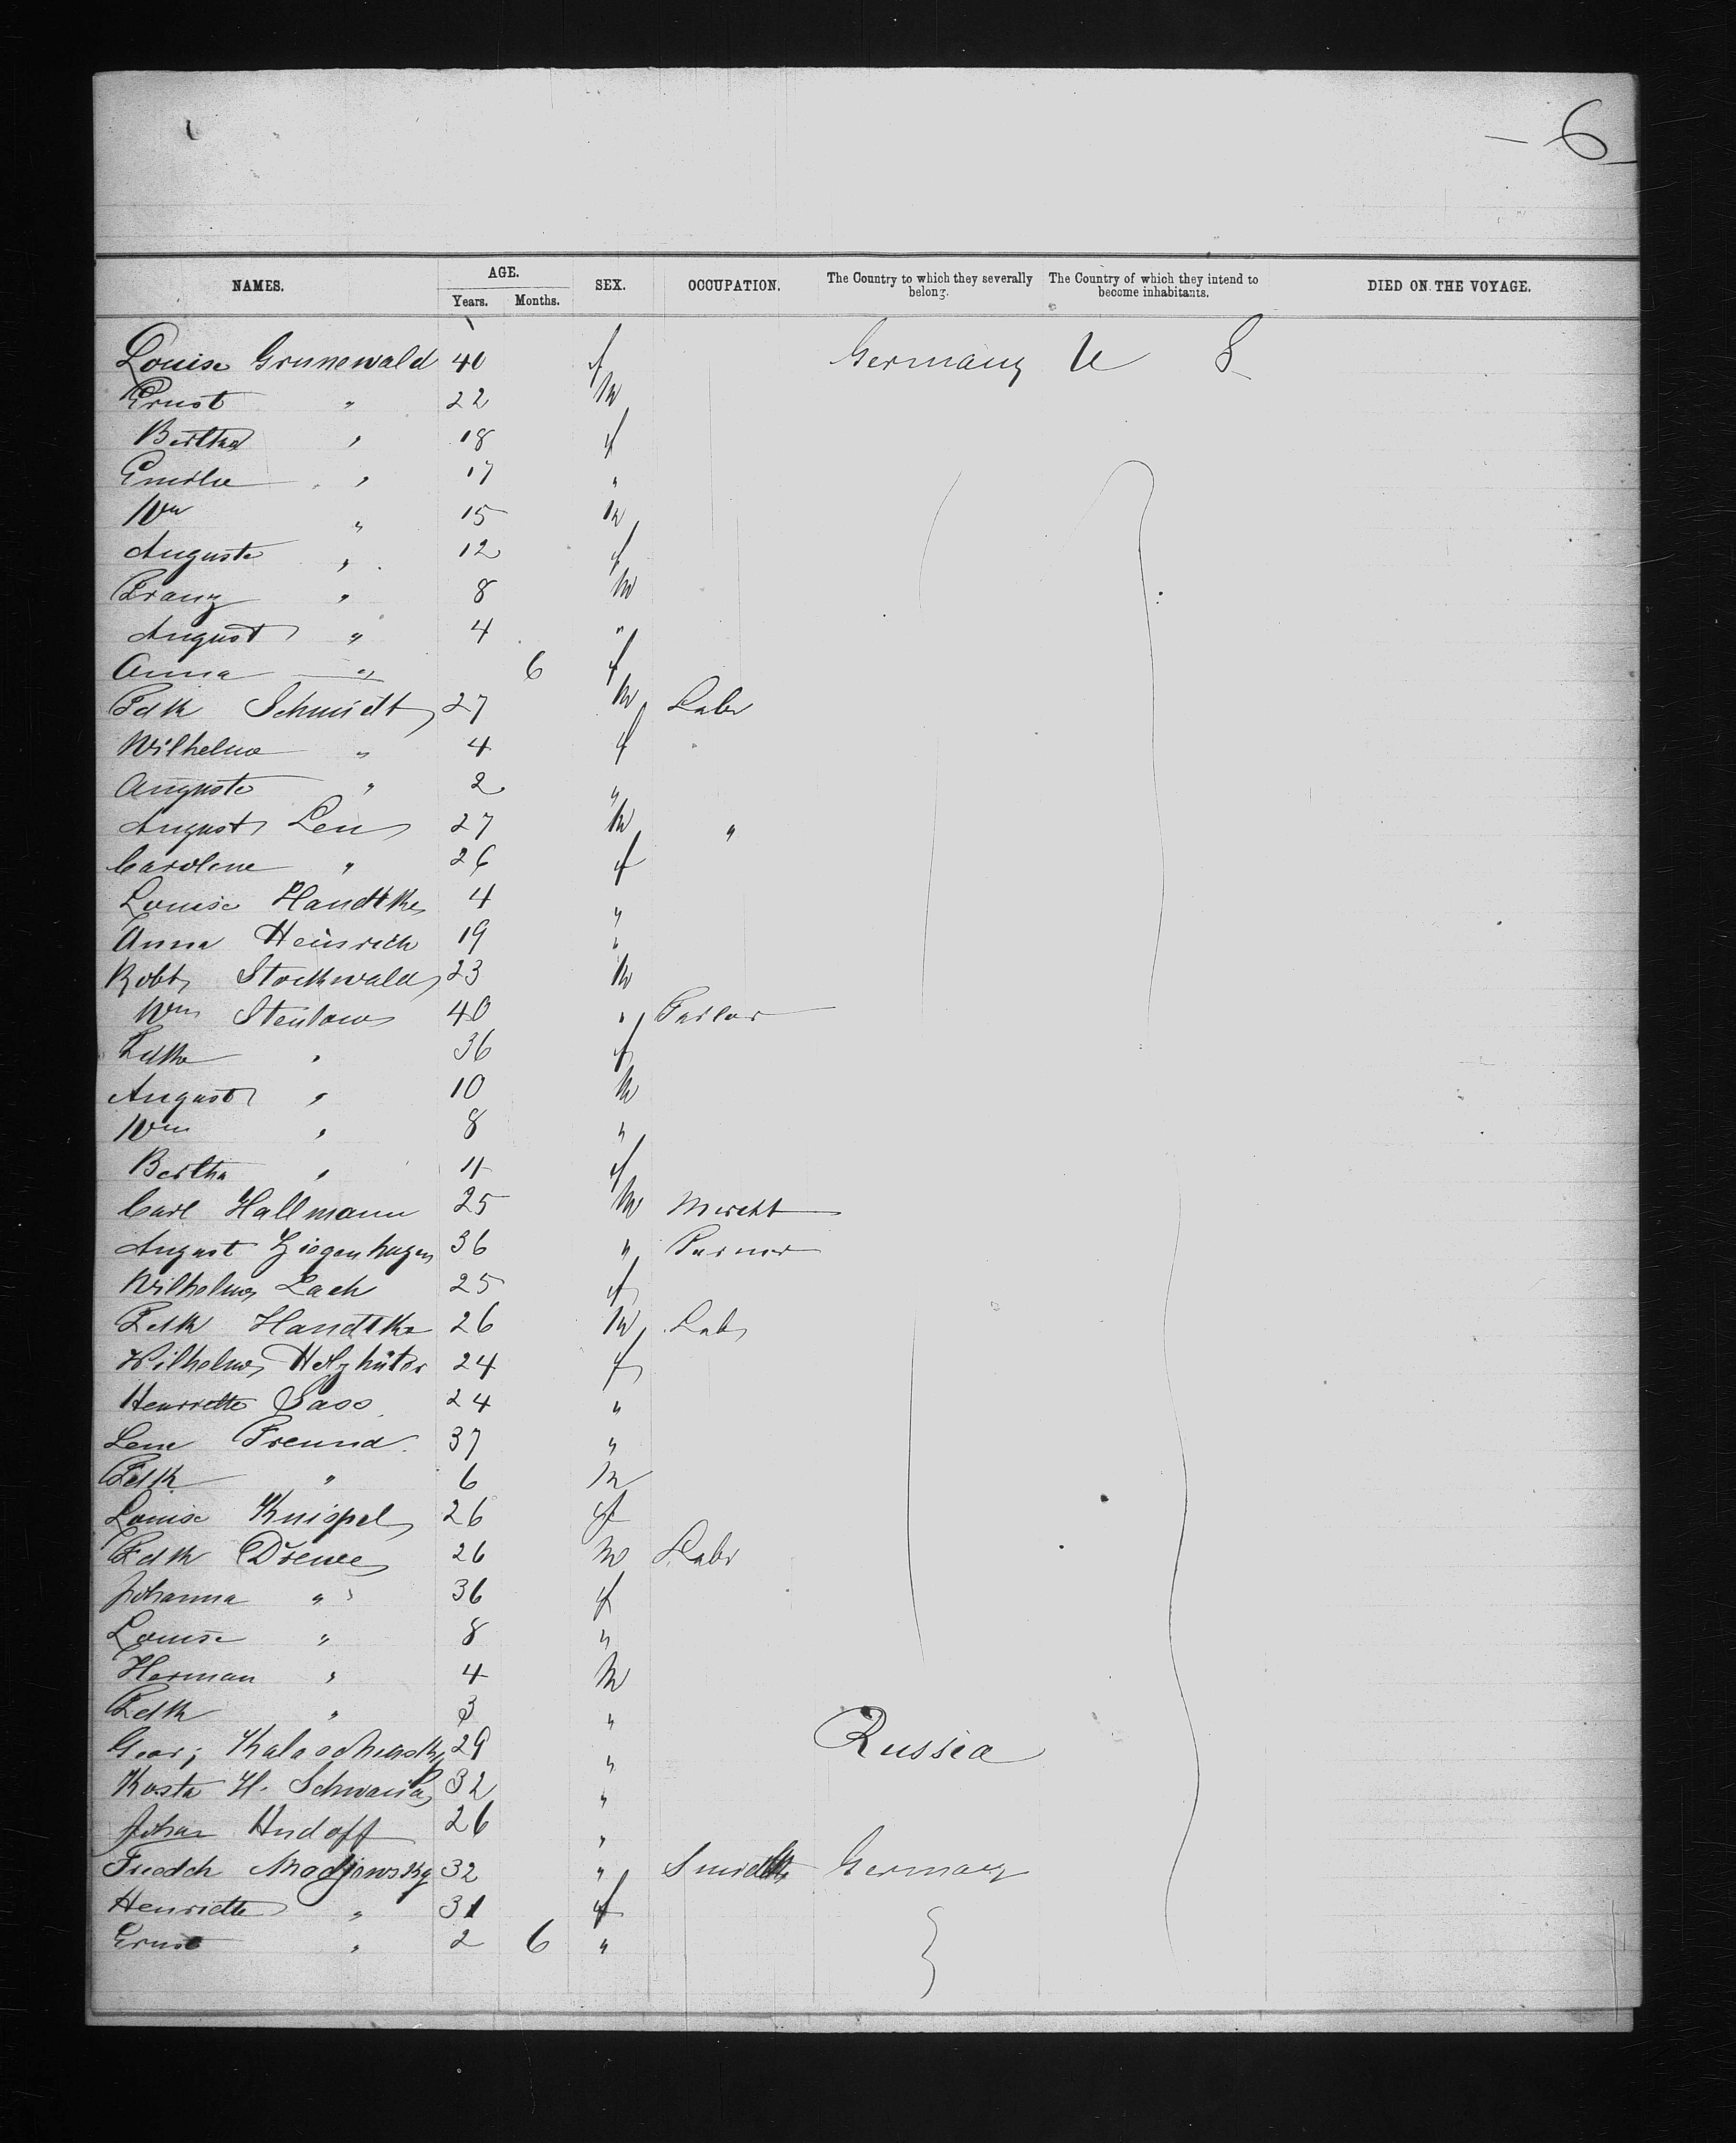 - 6 -
NAMES. AGE. Years. Months. SEX. OCCUPATION. The Country to which they severally belong. The Country of which they intend to become inhabitants. DIED ON THE VOYAGE.
Louise Grunewald 40 f Germany U S
Ernst " 22 M
Bertha " 18 f
Emilie " 17 "
Wm " 15 M
Auguste " 12 f
Franz " 8 M
August " 4 "
Anna " 6 f
Fdk Schmidt 27 M Labr
Wilhelme " 4 f
Auguste " 2 "
August Leu 27 M "
Caroline " 26 f
Louise Handtke 4 "
Anna Heinrich 19 "
Robt Stockwald 23 M
Wm Stenlow 40 " Tailor
Fdke " 36 f
August " 10 M
Wm " 8 "
Bertha " 4 f
Carl Hallmann 25 M Mercht
August Ziegenhagen 36 " Farmer
Wilhelme Lach 25 f
Fdk Handtke 26 M Lab
Wilhelme Holzhüter 24 f
Henriette Sass 24 "
Lene Freund 37 "
Fdk " 6 M
Louise Knispel 26 f
Fdk Drewe 26 M Labr
Johanna " 36 f
Louise " 8 "
Herman " 4 M
Fdk " 3 "
Geor; 29 " Russia
Kosta H. 32 "
Johan Hudoff 26 "
32 " Smidth Germany
Henriette " 31 f
Ernst " 2 6 "